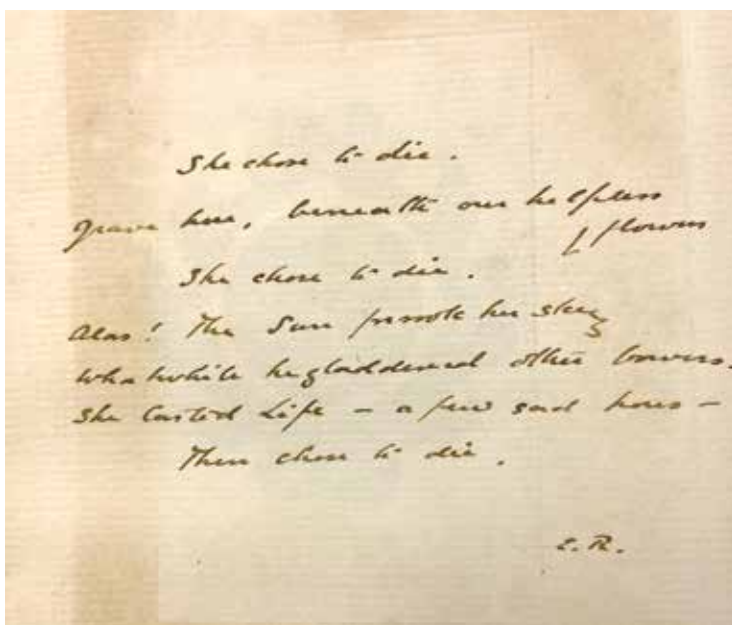 She chose to die.
Grave her, beneath our helpless
[flowers
She chose to die.
Alas! The Sun forsook her sky
What while he gladdened other bowers.
She tasted Life — a few sad hours —
Then chose to die.
E. R.